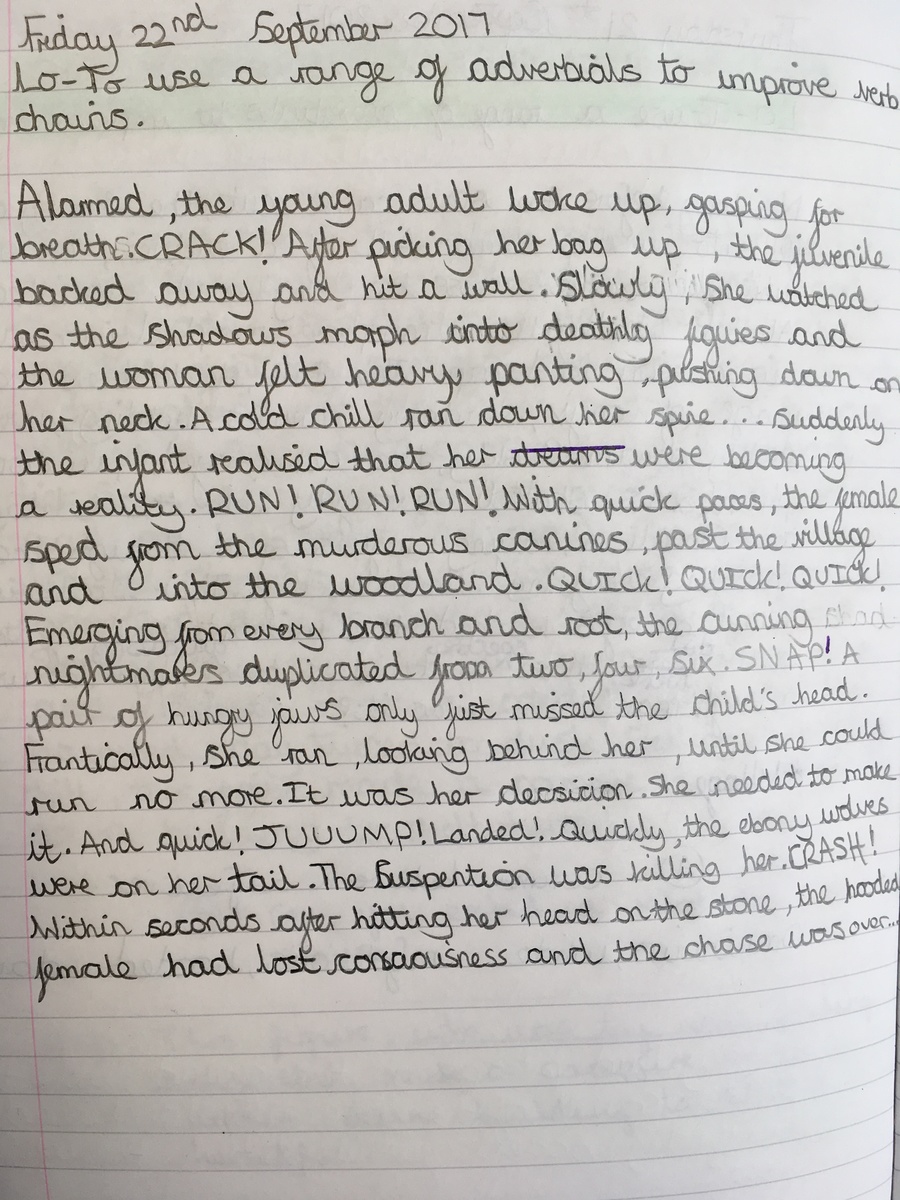 Friday 22nd September 2017
LO-To use a range of adverbials to improve verb
chains.
Alarmed, the young adult woke up, gasping for
breath.CRACK! After picking her bag up, the juvenile
backed away and hit a wall. Slowly, she watched
as the shadows morph into deathly figures and
the woman felt heavy panting, pushing down on
her neck. A cold chill ran down her spine... Suddenly
the infant realised that her dreams were becoming
a reality. RUN! RUN! RUN! With quick paces, the female
sped from the murderous canines, past the village
and into the woodland. QUICK! QUICK! QUICK!
Emerging from every branch and root, the cunning shad
nightmares duplicated from two, four, six. SNAP! A
pair of hungry jaws only just missed the child's head.
Frantically, she ran, looking behind her, until she could
run no more. It was her decsicion. She needed to make
it. And quick! JUUUMP! Landed! Quickly, the ebony wolves
were on her tail. The Suspention was killing her. CRASH!
Within seconds after hitting her head on the stone, the hooded
female had lost consciousness and the chase was over...